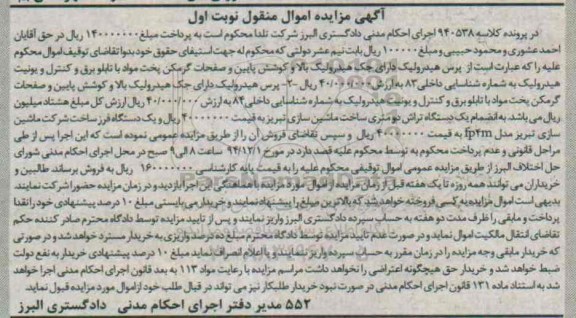 آگهی مزایده اموال منقول نوبت اول
در پرونده کلاسه ۹۴۰۵۳۸ اجرای احکام مدنی دادگستری البرز شرکت تلدا محکوم است به پرداخت مبلغ ۱۴۰۰۰۰۰۰۰ ریال در حق آقایان
احمد عشوری و محمود حبیبی و مبلغ ۱۰۰۰۰۰ ریال بابت نیم عشر دولتی که محکوم له جهت استیفای حقوق خود بدوا تقاضای توقیف اموال محکوم
علیه را که عبارت است از پرس هیدرولیک دارای جک هیدرولیک بالا و کوشش پایین و صفحات گرمکن پخت مواد با تابلو برق و کنترل و یونیت
هیدرولیک به شماره شناسایی داخلی ۸۳ به ارزش ۴۰/۰۰۰/۰۰۰ ریال ۲- پرس هیدرولیک دارای جک هیدرولیک بالا و کوشش پایین و صفحات
گرمکن پخت مواد با تابلو برق و کنترل و یونیت هیدرولیک به شماره شناسایی داخلی ۸۴ به ارزش ۴۰/۰۰۰/۰۰۰ ریال ارزش کل مبلغ هشتاد میلیون
ریال می باشد به انضمام یک دستگاه تراش دو متری ساخت ماشین سازی تبریز به قیمت ۴۰۰۰۰۰۰۰ ریال و یک دستگاه فرز ساخت شرکت ماشین
سازی تبریز مدل fp4m به قیمت ۴۰۰۰۰۰۰۰ ریال و سپس تقاضای فروش آن را از طریق مزایده عمومی نموده است که این اجرا پس از طی
مراحل قانونی و عدم پرداخت محکوم به توسط محکوم علیه قصد دارد در مورخ ۹۴/۱۲/۱ ساعت ۸ الی ۹ صبح در محل اجرای احکام مدنی شورای
حل اختلاف البرز از طریق مزایده عمومی اموال توقیفی محکوم علیه را به قیمت پایه کارشناسی ۱۶۰۰۰۰۰۰۰ ریال به فروش برساند طالبین و
خریداران می توانند همه روزه تا یک هفته قبل از زمان مزایده از اموال مورد مزایده با هماهنگی این اجرا بازدید و در زمان مزایده حضور شرکت نمایند
بدیهی است اموال مزایده به کسی فروخته خواهد شد که بالاترین مبلغ را پیشنهاد نمایند و خریدار می بایستی مبلغ ۱۰ درصد پیشنهادی خود را نقدا
پرداخت و مابقی را ظرف مدت دو هفته به حساب سپرده دادگستری البرز واریز نمایند و پس از تایید مزایده توسط دادگاه محترم صادر کننده حکم
تقاضای انتقال مالکیت اموال نماید و در صورت عدم تایید مزایده توسط دادگاه محترم مبلغ ده درصد واریزی به خریدار مسترد خواهد شد و در صورتی
که خریدار مابقی وجه مزایده را در زمان مقرر به حساب سپرده واریز ننماید و یا اعلام انصراف نماید مبلغ ۱۰ درصد پیشنهادی خریدار به نفع دولت
ضبط خواهد شد و خریدار حق هیچگونه اعتراضی را نخواهد داشت مراسم مزایده با رعایت مواد ۱۱۳ به بعد قانون اجرای احکام مدنی اجرا خواهد
شد به استناد ماده ۱۳۱ قانون اجرای احکام مدنی در صورت نبود خریدار طلبکار نیز می تواند در قبال طلب خود از اموال مورد مزایده قبول نماید.
۵۵۲ مدیر دفتر اجرای احکام مدنی دادگستری البرز